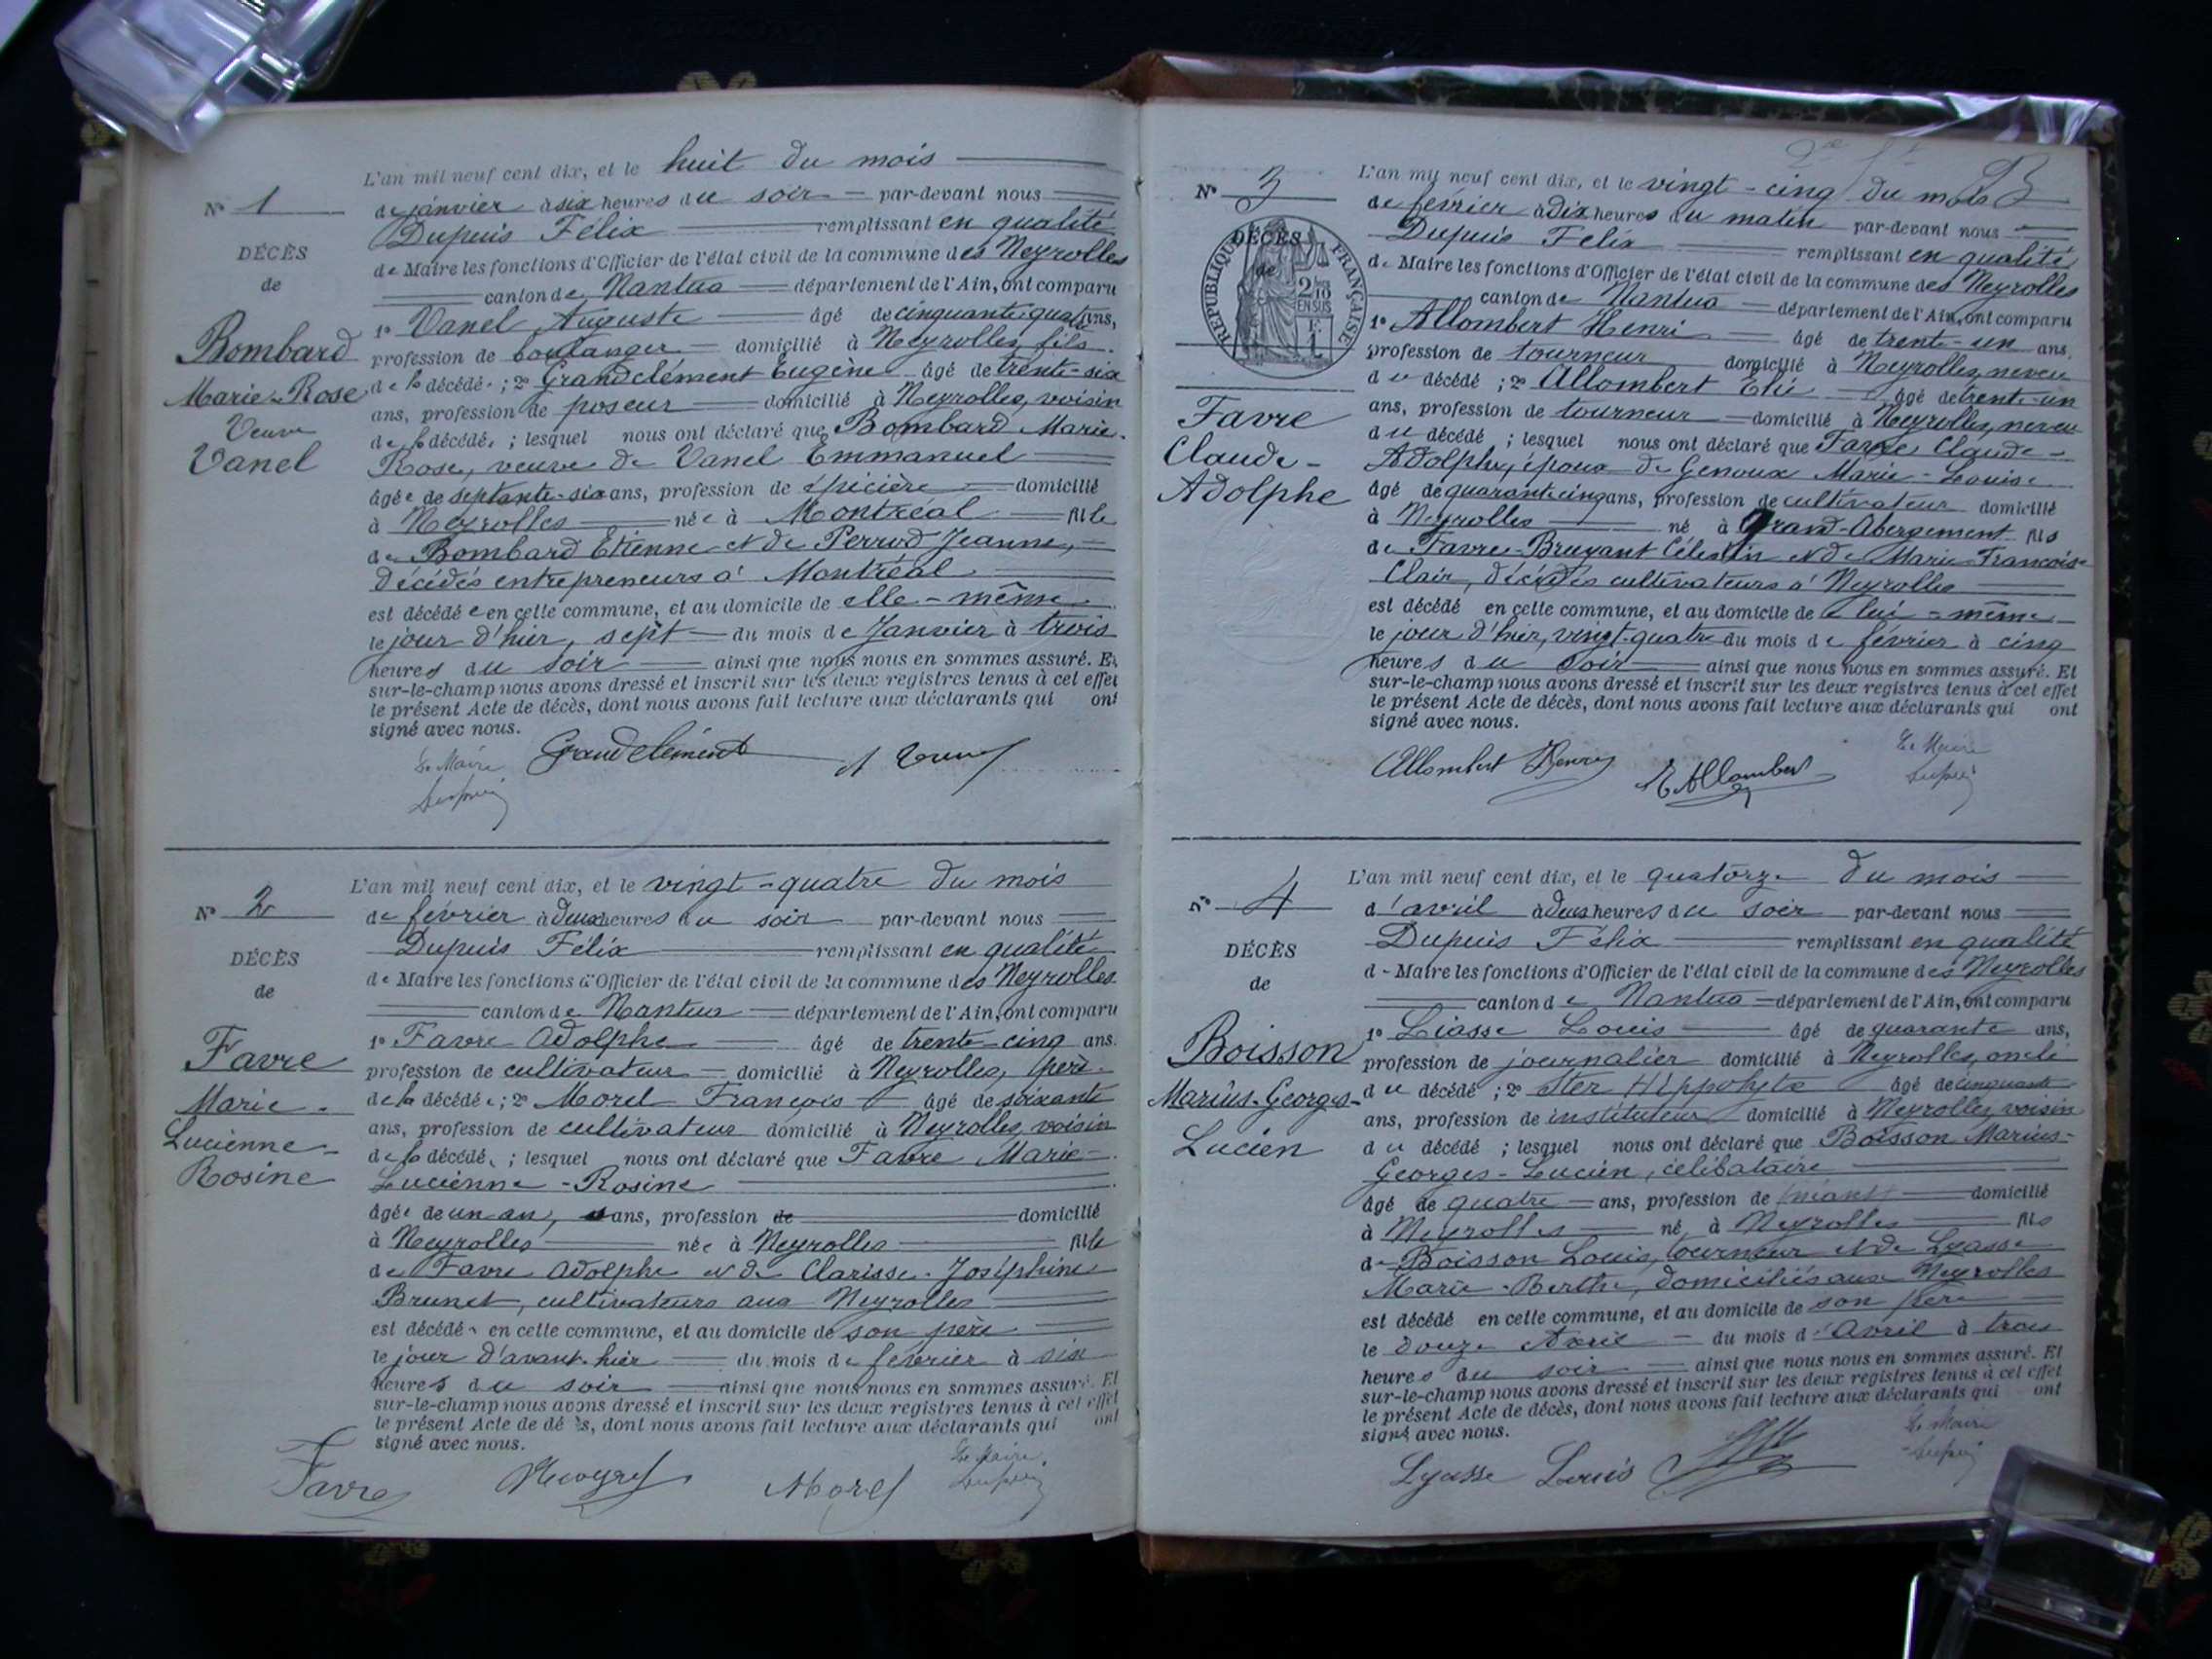 L'an mil neuf cent dix, et le huit du mois
Nº 1
de janvier à six heures du soir par-devant nous
Dupuis Félix remplissant en qualité
DÉCÈS
de Maire les fonctions d'Officier de l'état civil de la commune des Neyrolles
de
canton de Nantua département de l'Ain, ont comparu
1º Vanel Auguste âgé de cinquante-quatre ans,
Bombard
profession de boulanger domicilié à Neyrolles, fils
Marie-Rose
de la décédée ; 2º Grandclément Eugène âgé de trente-six
ans, profession de poseur domicilié à Neyrolles, voisin
Veuve
de la décédée ; lesquel nous ont déclaré que Bombard Marie-
Vanel
Rose, veuve de Vanel Emmanuel
âgée de septante-six ans, profession de épicière domicilié
à Neyrolles née à Montréal fille
de Bombard Etienne et de Perrod Jeanne,
décédés entrepreneurs à Montréal
est décédée en cette commune, et au domicile de elle-même
le jour d'hier, sept du mois de Janvier à trois
heures du soir ainsi que nous nous en sommes assuré. Et
sur-le-champ nous avons dressé et inscrit sur les deux registres tenus à cet effet
le présent Acte de décès, dont nous avons fait lecture aux déclarants qui ont
signé avec nous.
Le Maire Grandclément
Dupuis
L'an mil neuf cent dix, et le vingt-quatre du mois
Nº 2
de février à deux heures du soir par-devant nous
Dupuis Félix remplissant en qualité
DÉCÈS
de Maire les fonctions d'Officier de l'état civil de la commune des Neyrolles
de
canton de Nantua département de l'Ain, ont comparu
1º Favre Adolphe âgé de trente-cinq ans.
Favre
profession de cultivateur domicilié à Neyrolles, père
Marie-
de la décédée ; 2º Morel François âgé de soixante
ans, profession de cultivateur domicilié à Neyrolles, voisin
Lucienne-
de la décédée ; lesquel nous ont déclaré que Favre Marie-
Rosine
Lucienne-Rosine
âgée de un an, ans, profession de domicilié
à Neyrolles née à Neyrolles fille
de Favre Adolphe et de Clarisse-Joséphine
Brunet, cultivateurs aux Neyrolles
est décédée en cette commune, et au domicile de son père
le jour d'avant-hier du mois de février à six
heures du soir ainsi que nous nous en sommes assuré. Et
sur-le-champ nous avons dressé et inscrit sur les deux registres tenus à cet effet
le présent Acte de décès, dont nous avons fait lecture aux déclarants qui ont
signé avec nous.
Le Maire
Favre Morel Dupuis
L'an mil neuf cent dix, et le vingt-cinq du mois
Nº 3
de février à dix heures du matin par-devant nous
Dupuis Félix remplissant en qualité
DÉCÈS
de
RÉPUBLIQUE FRANÇAISE
2/10 EN SUS
de Maire les fonctions d'Officier de l'état civil de la commune des Neyrolles
canton de Nantua département de l'Ain, ont comparu
1º Allombert Henri âgé de trente-un ans,
profession de tourneur domicilié à Neyrolles, neveu
du décédé ; 2º Allombert Elie âgé de trente-un
Favre
ans, profession de tourneur domicilié à Neyrolles, neveu
du décédé ; lesquel nous ont déclaré que Favre Claude-
Claude-
Adolphe, époux de Genoux Marie-Louise
Adolphe
âgé de quarante-cinq ans, profession de cultivateur domicilié
à Neyrolles né à Grand-Abergement fils
de Favre-Bruyant Célestin et de Marie-Françoise
Clair, décédés cultivateurs à Neyrolles
est décédé en cette commune, et au domicile de lui-même
le jour d'hier, vingt-quatre du mois de février à cinq
heures du soir ainsi que nous nous en sommes assuré. Et
sur-le-champ nous avons dressé et inscrit sur les deux registres tenus à cet effet
le présent Acte de décès, dont nous avons fait lecture aux déclarants qui ont
signé avec nous.
Allombert Henri E. Allombert Le Maire
Dupuis
L'an mil neuf cent dix, et le quatorze du mois
Nº 4
d'avril à deux heures du soir par-devant nous
Dupuis Félix remplissant en qualité
DÉCÈS
de Maire les fonctions d'Officier de l'état civil de la commune des Neyrolles
de
canton de Nantua département de l'Ain, ont comparu
1º Liasse Louis âgé de quarante ans,
Boisson
profession de journalier domicilié à Neyrolles, oncle
Marius-Georges-
du décédé ; 2º Ster Hippolyte âgé de cinquante
ans, profession de instituteur domicilié à Neyrolles, voisin
Lucien
du décédé ; lesquel nous ont déclaré que Boisson Marius-
Georges-Lucien, célibataire
âgé de quatre ans, profession de néant domicilié
à Neyrolles né à Neyrolles fils
de Boisson Louis, tourneur et de Lyasse
Marie-Berthe, domiciliés aux Neyrolles
est décédé en cette commune, et au domicile de son père
le douze Avril du mois d'Avril à trois
heures du soir ainsi que nous nous en sommes assuré. Et
sur-le-champ nous avons dressé et inscrit sur les deux registres tenus à cet effet
le présent Acte de décès, dont nous avons fait lecture aux déclarants qui ont
signé avec nous.
Lyasse Louis Le Maire
Dupuis